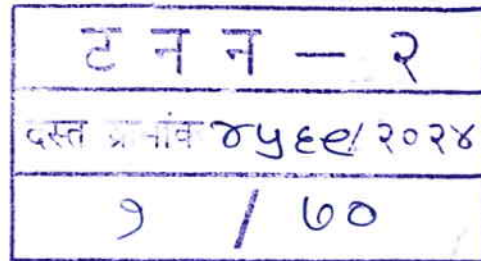 ट न न – २
दस्त क्रमांक ४५६९/२०२४
१ / ७०